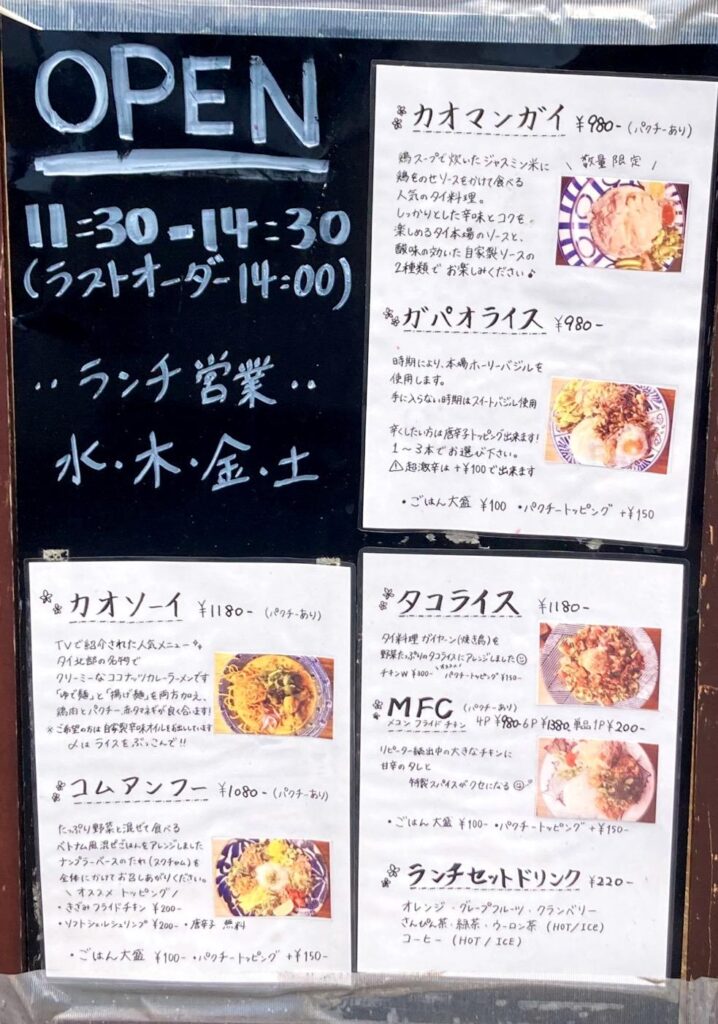 OPEN
11:30-14:30
(ラストオーダー14:00)
‥ランチ営業‥
水・木・金・土
カオマンガイ ¥980- (パクチーあり)
\ 数量限定 /
鶏スープで炊いたジャスミン米に
鶏をのせソースをかけて食べる
人気のタイ料理。
しっかりとした辛味とコクを
楽しめるタイ本場のソースと、
酸味の効いた自家製ソースの
2種類でお楽しみください♪
ガパオライス ¥980-
時期により、本場ホーリーバジルを
使用します。
手に入らない時期はスイートバジル使用
辛くしたい方は唐辛子トッピング出来ます!
1〜3本でお選び下さい。
⚠超激辛は+¥100で出来ます
・ごはん大盛 ¥100 ・パクチートッピング +¥150
カオソーイ ¥1180- (パクチーあり)
TVで紹介された人気メニュー
タイ北部の名物で
クリーミーなココナッツカレーラーメンです
「ゆで麺」と「揚げ麺」を両方加え、
鶏肉とパクチー、赤タマネギが良く合います!
※ご希望の方は自家製辛味オイルをお出ししています
〆はライスをぶっこんで!!
コムアンフー ¥1080- (パクチーあり)
たっぷり野菜と混ぜて食べる
ベトナム風混ぜごはんをアレンジしました
ナンプラーベースのたれ(ヌクチャム)を
全体にかけてお召しあがりください。
\ オススメトッピング /
・きざみフライドチキン ¥200-
・ソフトシェルシュリンプ ¥200- ・唐辛子 無料
・ごはん大盛 ¥100- ・パクチートッピング +¥150-
タコライス ¥1180-
タイ料理ガイヤーン(焼き鳥)を
野菜たっぷりのタコライスにアレンジしました
オススメ
チキンW ¥300- パクチートッピング ¥150-
MFC (パクチーあり)
メコンフライドチキン 4P ¥980- 6P ¥1380- 単品1P ¥200-
リピーター続出中の大きなチキンに
甘辛のタレと
特製スパイスがクセになる
・ごはん大盛 ¥100- ・パクチートッピング +¥150-
ランチセットドリンク ¥220-
オレンジ・グレープフルーツ・クランベリー
さんぴん茶・緑茶・ウーロン茶 (HOT/ICE)
コーヒー (HOT/ICE)